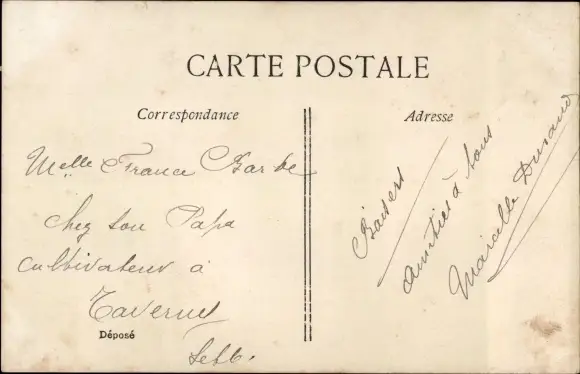 CARTE POSTALE
Correspondance
Melle France Barbe
chez son Papa
cultivateur à
Tavernes
Déposé
Adresse
Baisers
Amitiés à tous
Marcelle Durand